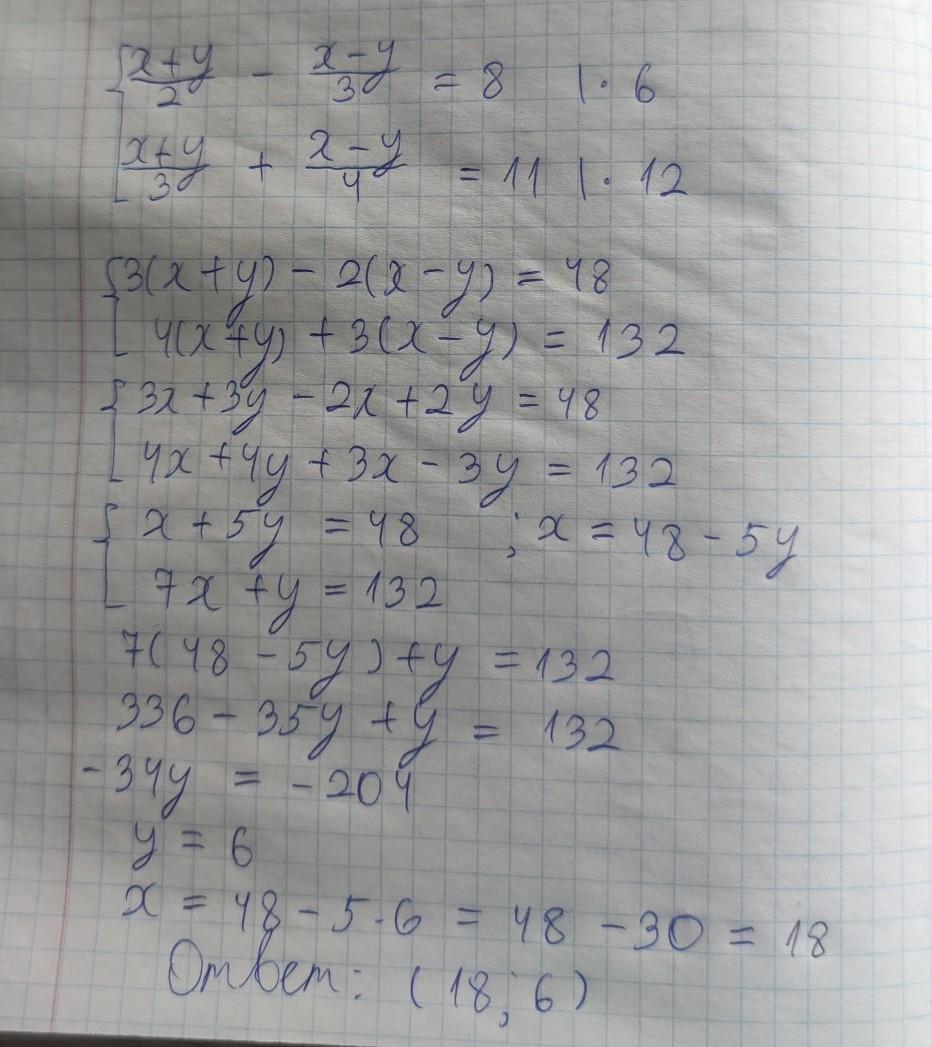 {(x+y)/2 - (x-y)/3 = 8 |· 6
(x+y)/3 + (x-y)/4 = 11 |· 12
{3(x+y) - 2(x-y) = 48
4(x+y) + 3(x-y) = 132
{3x+3y - 2x+2y = 48
4x+4y+3x-3y = 132
{x+5y = 48 ; x = 48-5y
7x+y = 132
7(48-5y)+y = 132
336-35y+y = 132
-34y = -204
y = 6
x = 48-5·6 = 48-30 = 18
Ответ: (18; 6)